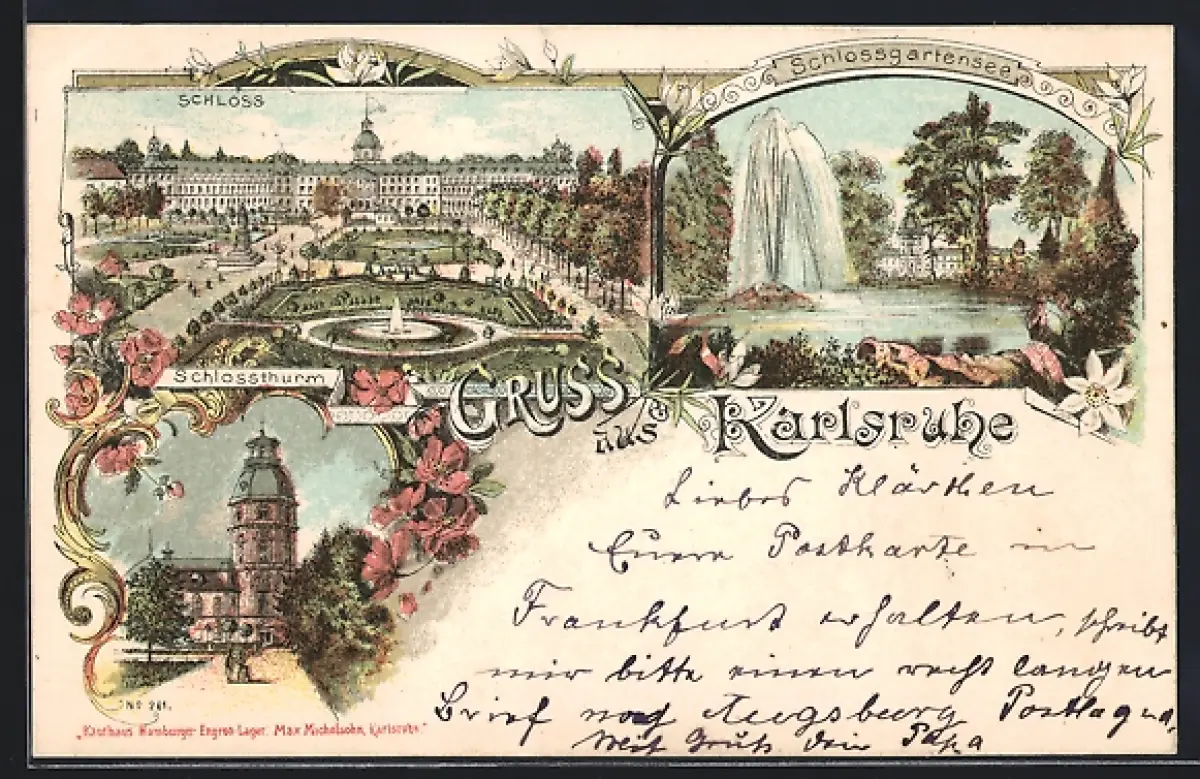 SCHLOSS
Schlossgartensee
Schlossthurm
GRUSS
aus
Karlsruhe
Liebes Klärchen
Euere Postkarte in
Frankfurt erhalten, schreibt
mir bitte einen recht langen
Brief nach Augsburg Postlag
Gruß Dein Papa
No 261.
„Kaufhaus Hamburger Engros-Lager. Max Michelsohn, Karlsruhe.“